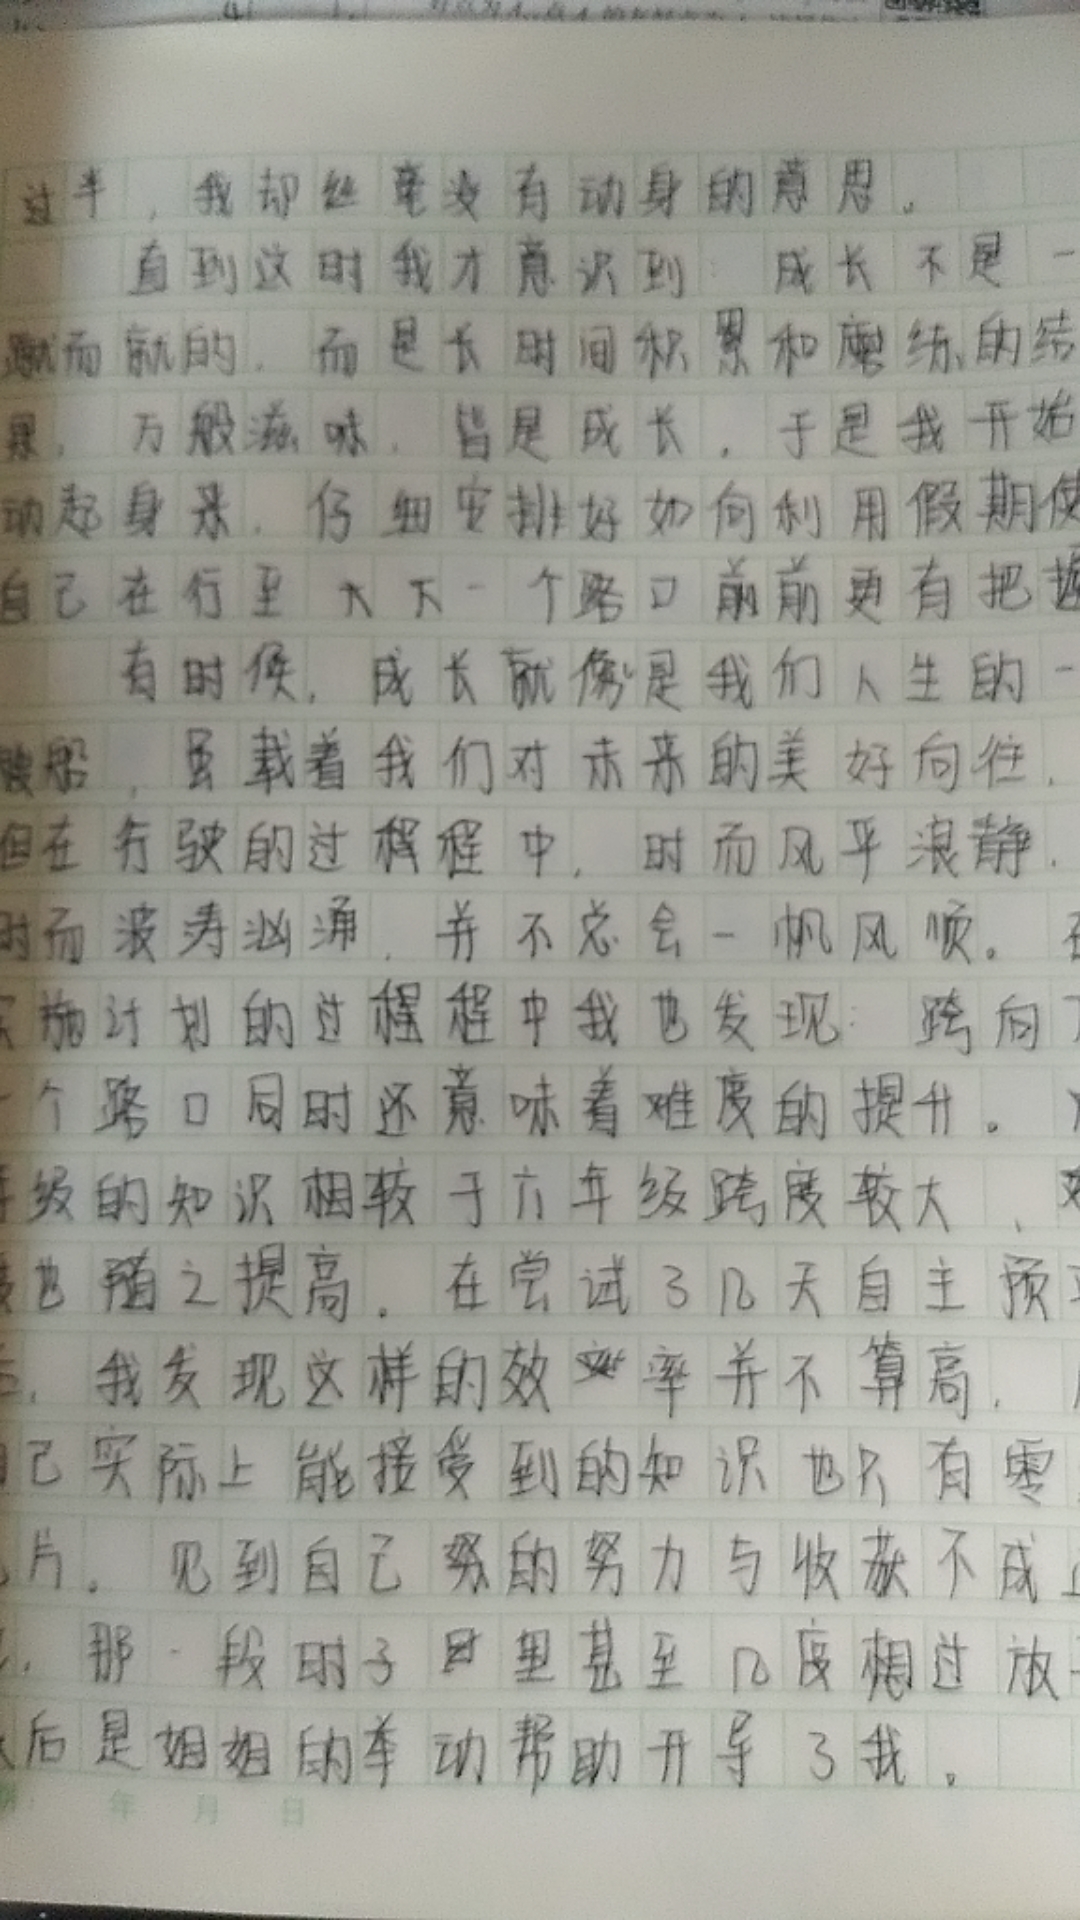 过半，我却丝毫没有动身的意思。
直到这时我才意识到：成长不是一
蹴而就的，而是长时间积累和磨练的结
果，万般滋味，皆是成长，于是我开始
动起身来，仔细安排好如何利用假期使
自己在行至大下一个路口前前更有把握
有时候，成长就像是我们人生的一
艘船，虽载着我们对未来的美好向往，
但在行驶的过程程中，时而风平浪静，
时而波涛汹涌，并不总会一帆风顺。在
实施计划的过程程中我也发现：跨向下
一个路口同时还意味着难度的提升。
年级的知识相较于六年级跨度较大，难
度也随之提高。在尝试了几天自主预习
后，我发现这样的效率并不算高，
自己实际上能接受到的知识也只有零
片。见到自己努的努力与收获不成正
那一段时子日里甚至几度想过放弃
后是姐姐的牵动帮助开导了我。
年 月 日